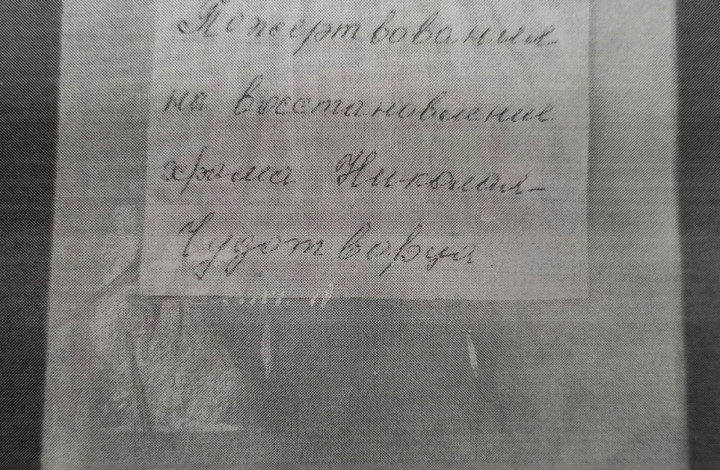 Пожертвования
на восстановление
храма Николая-
Чудотворца